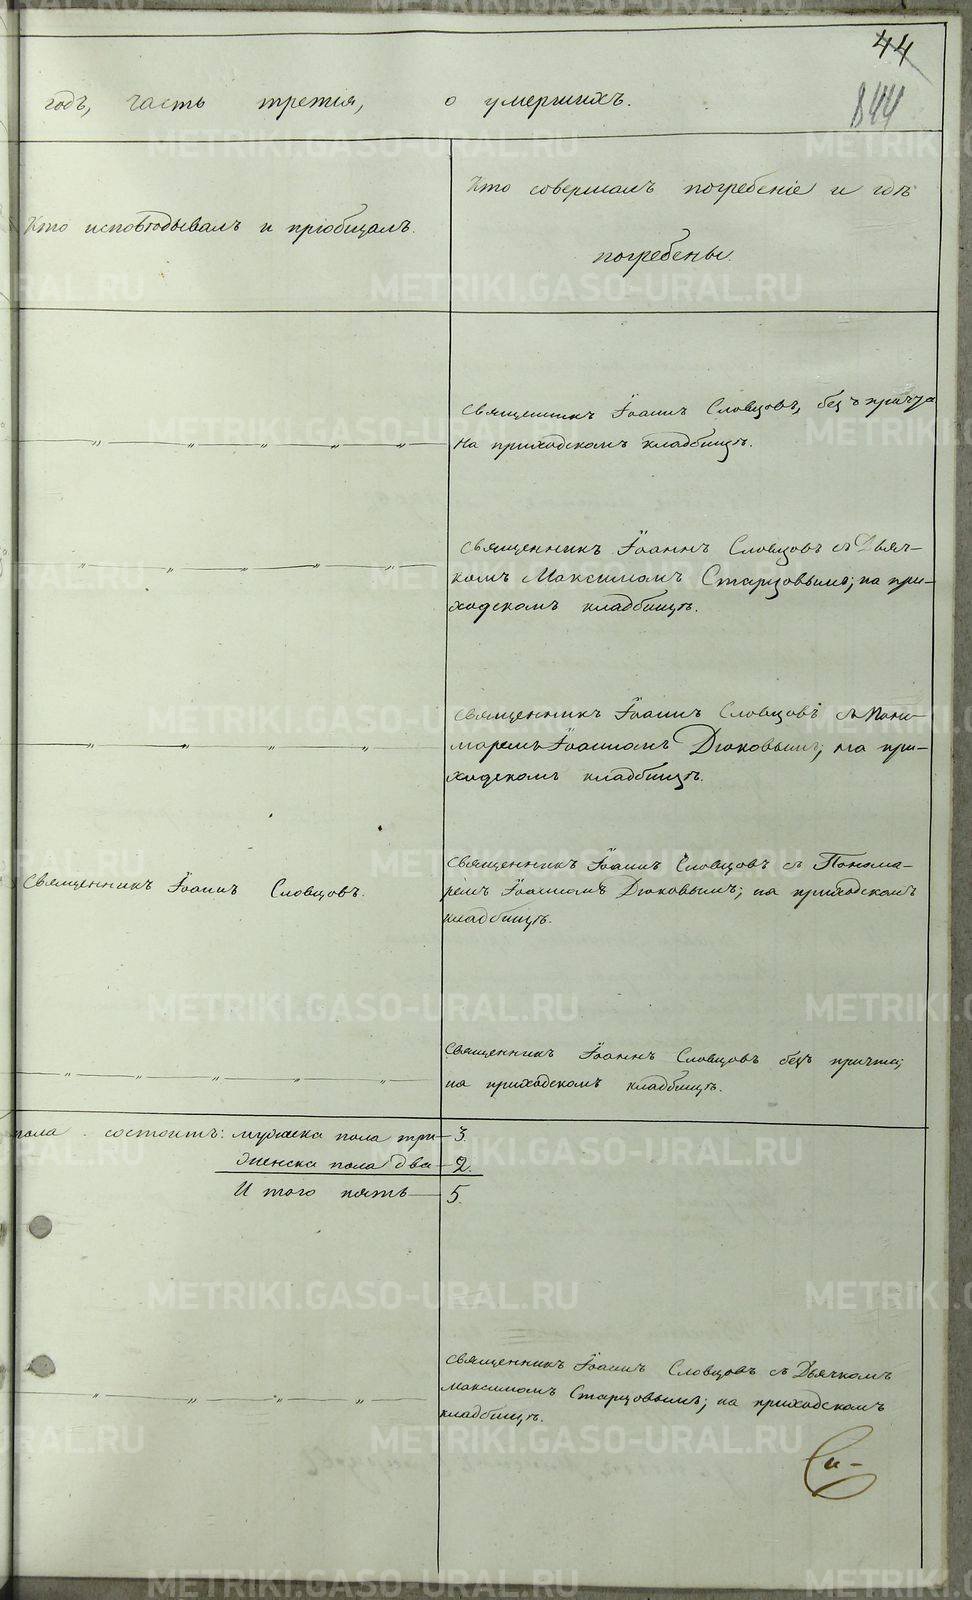 44
844
годъ, часть третія, о умершихъ.
Кто исповѣдывалъ и пріобщалъ.
Кто совершалъ погребеніе и гдѣ
погребены.
Священникъ Іоаннъ Словцовъ, безъ причта
На приходскомъ кладбищѣ.
Священникъ Іоаннъ Словцовъ съ Дьяч-
комъ Максимомъ Старцовымъ; на при-
ходскомъ кладбищѣ.
Священникъ Іоаннъ Словцовъ съ Поно-
маремъ Іоанномъ Дюковымъ; на при-
ходскомъ кладбищѣ.
Священникъ Іоаннъ Словцовъ.
Священникъ Іоаннъ Словцовъ съ Понома-
ремъ Іоанномъ Дюковымъ; на приходскомъ
кладбищѣ.
Священникъ Іоаннъ Словцовъ безъ причта;
на приходскомъ кладбищѣ.
пола состоитъ: мужеска пола три — 3.
Женска пола два — 2.
Итого пять — 5.
Священникъ Іоаннъ Словцовъ съ Дьячкомъ
Максимомъ Старцовымъ; на приходскомъ
кладбищѣ.
METRIKI.GASO-URAL.RU